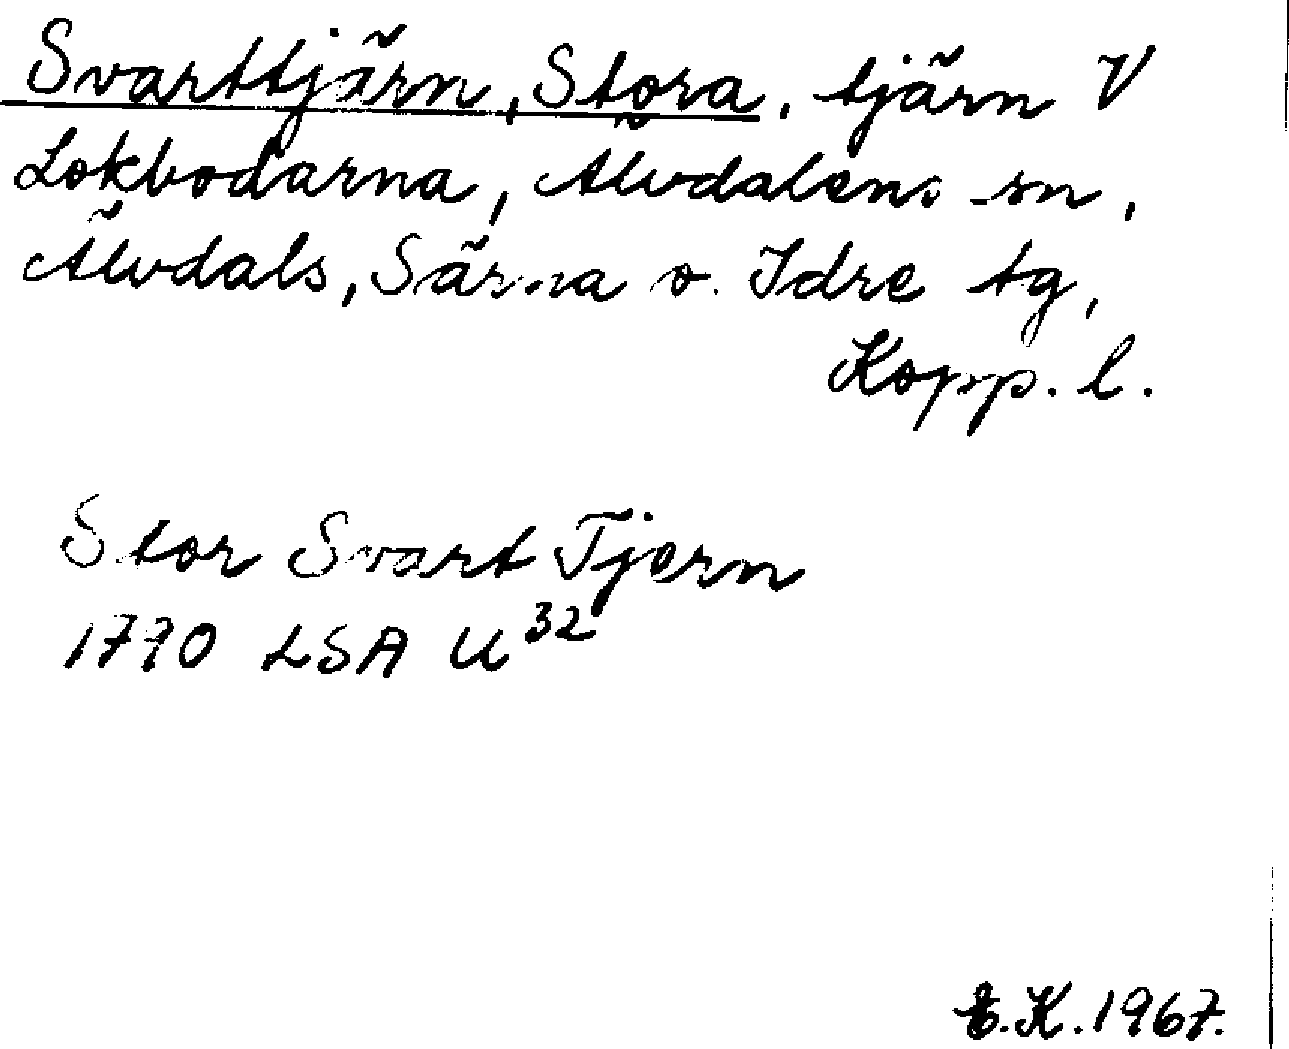 Svarttjärn, Stora, tjärn V
Lokbodarna, Älvdalens sn,
Älvdals, Särna o. Idre tg,
Kopp. l.
Stor Svart Tjern
1790 LSA U³²
K. 1967.